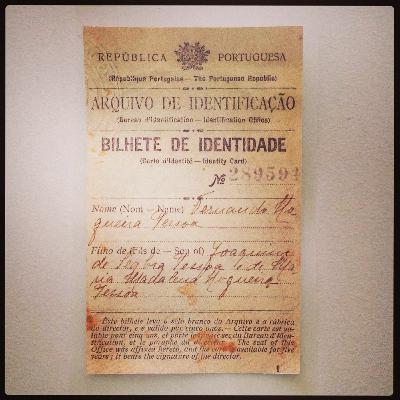 REPÚBLICA PORTUGUESA
(République Portugaise — The Portuguese Republic)
ARQUIVO DE IDENTIFICAÇÃO
(Bureau d'Identification — Identification Office)
BILHETE DE IDENTIDADE
(Carte d'Identité — Identity Card)
Nº 289594
Nome (Nom — Name) Fernando No-
gueira Pessoa
Filho de (Fils de — Son of) Joaquim
de Seabra Pessoa e de Ma-
ria Madalena Nogueira
Pessoa
Este bilhete leva o selo branco do Arquivo e a rúbrica
do director, e é válido por cinco anos. — Cette carte est va-
lable pour cinq ans, et porte le sec du Bureau d'Iden-
tification, et le paraphe du directeur. The seal of this
Office was affixed hereto, and the card is available for five
years; it bears the signature of the director.
1